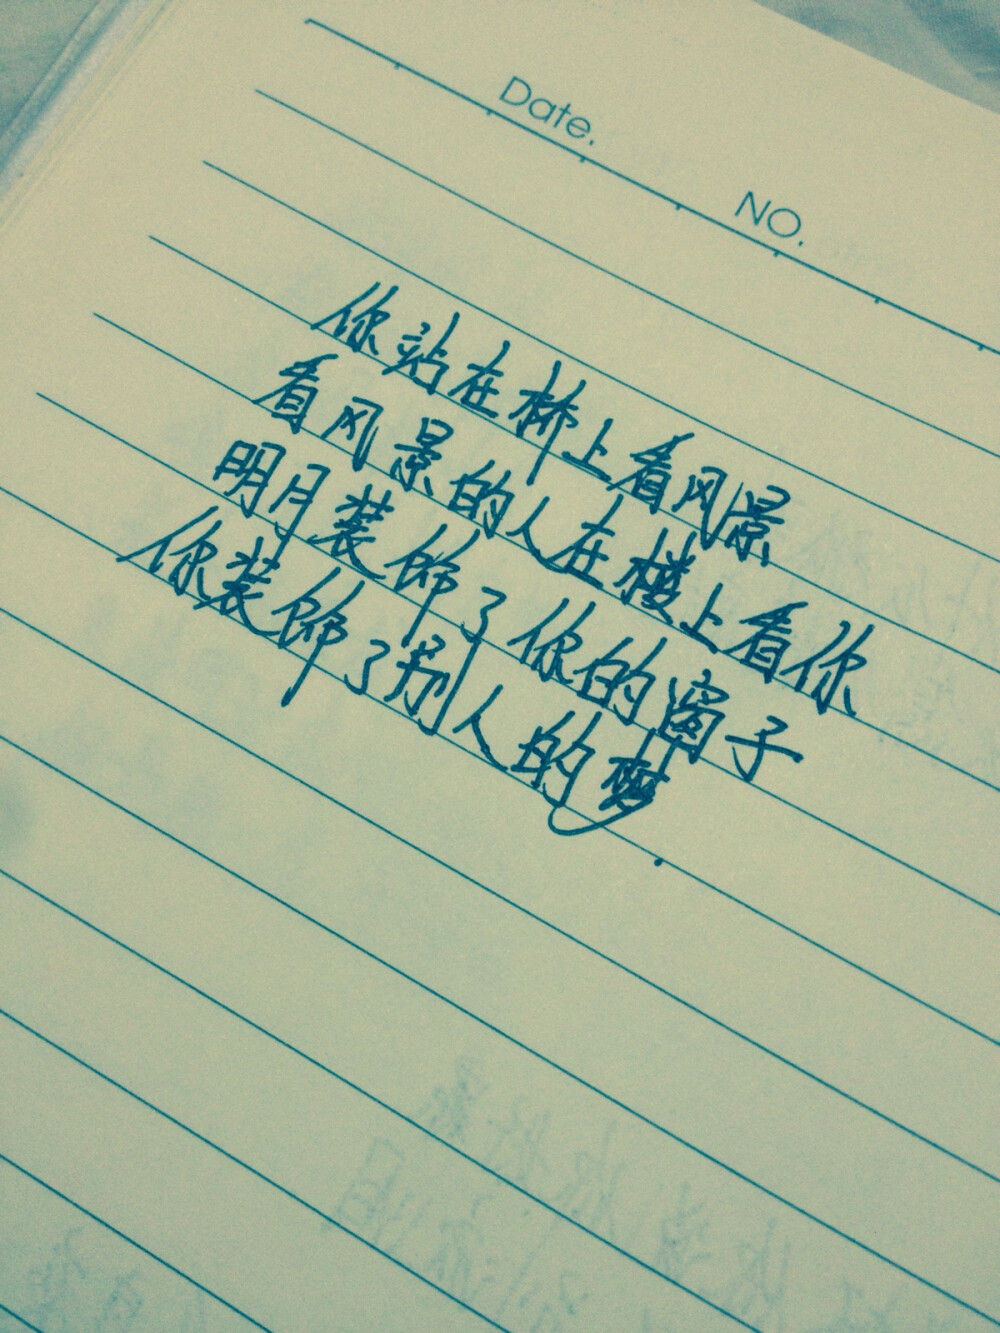 Date.
NO.
你站在桥上看风景
看风景的人在楼上看你
明月装饰了你的窗子
你装饰了别人的梦